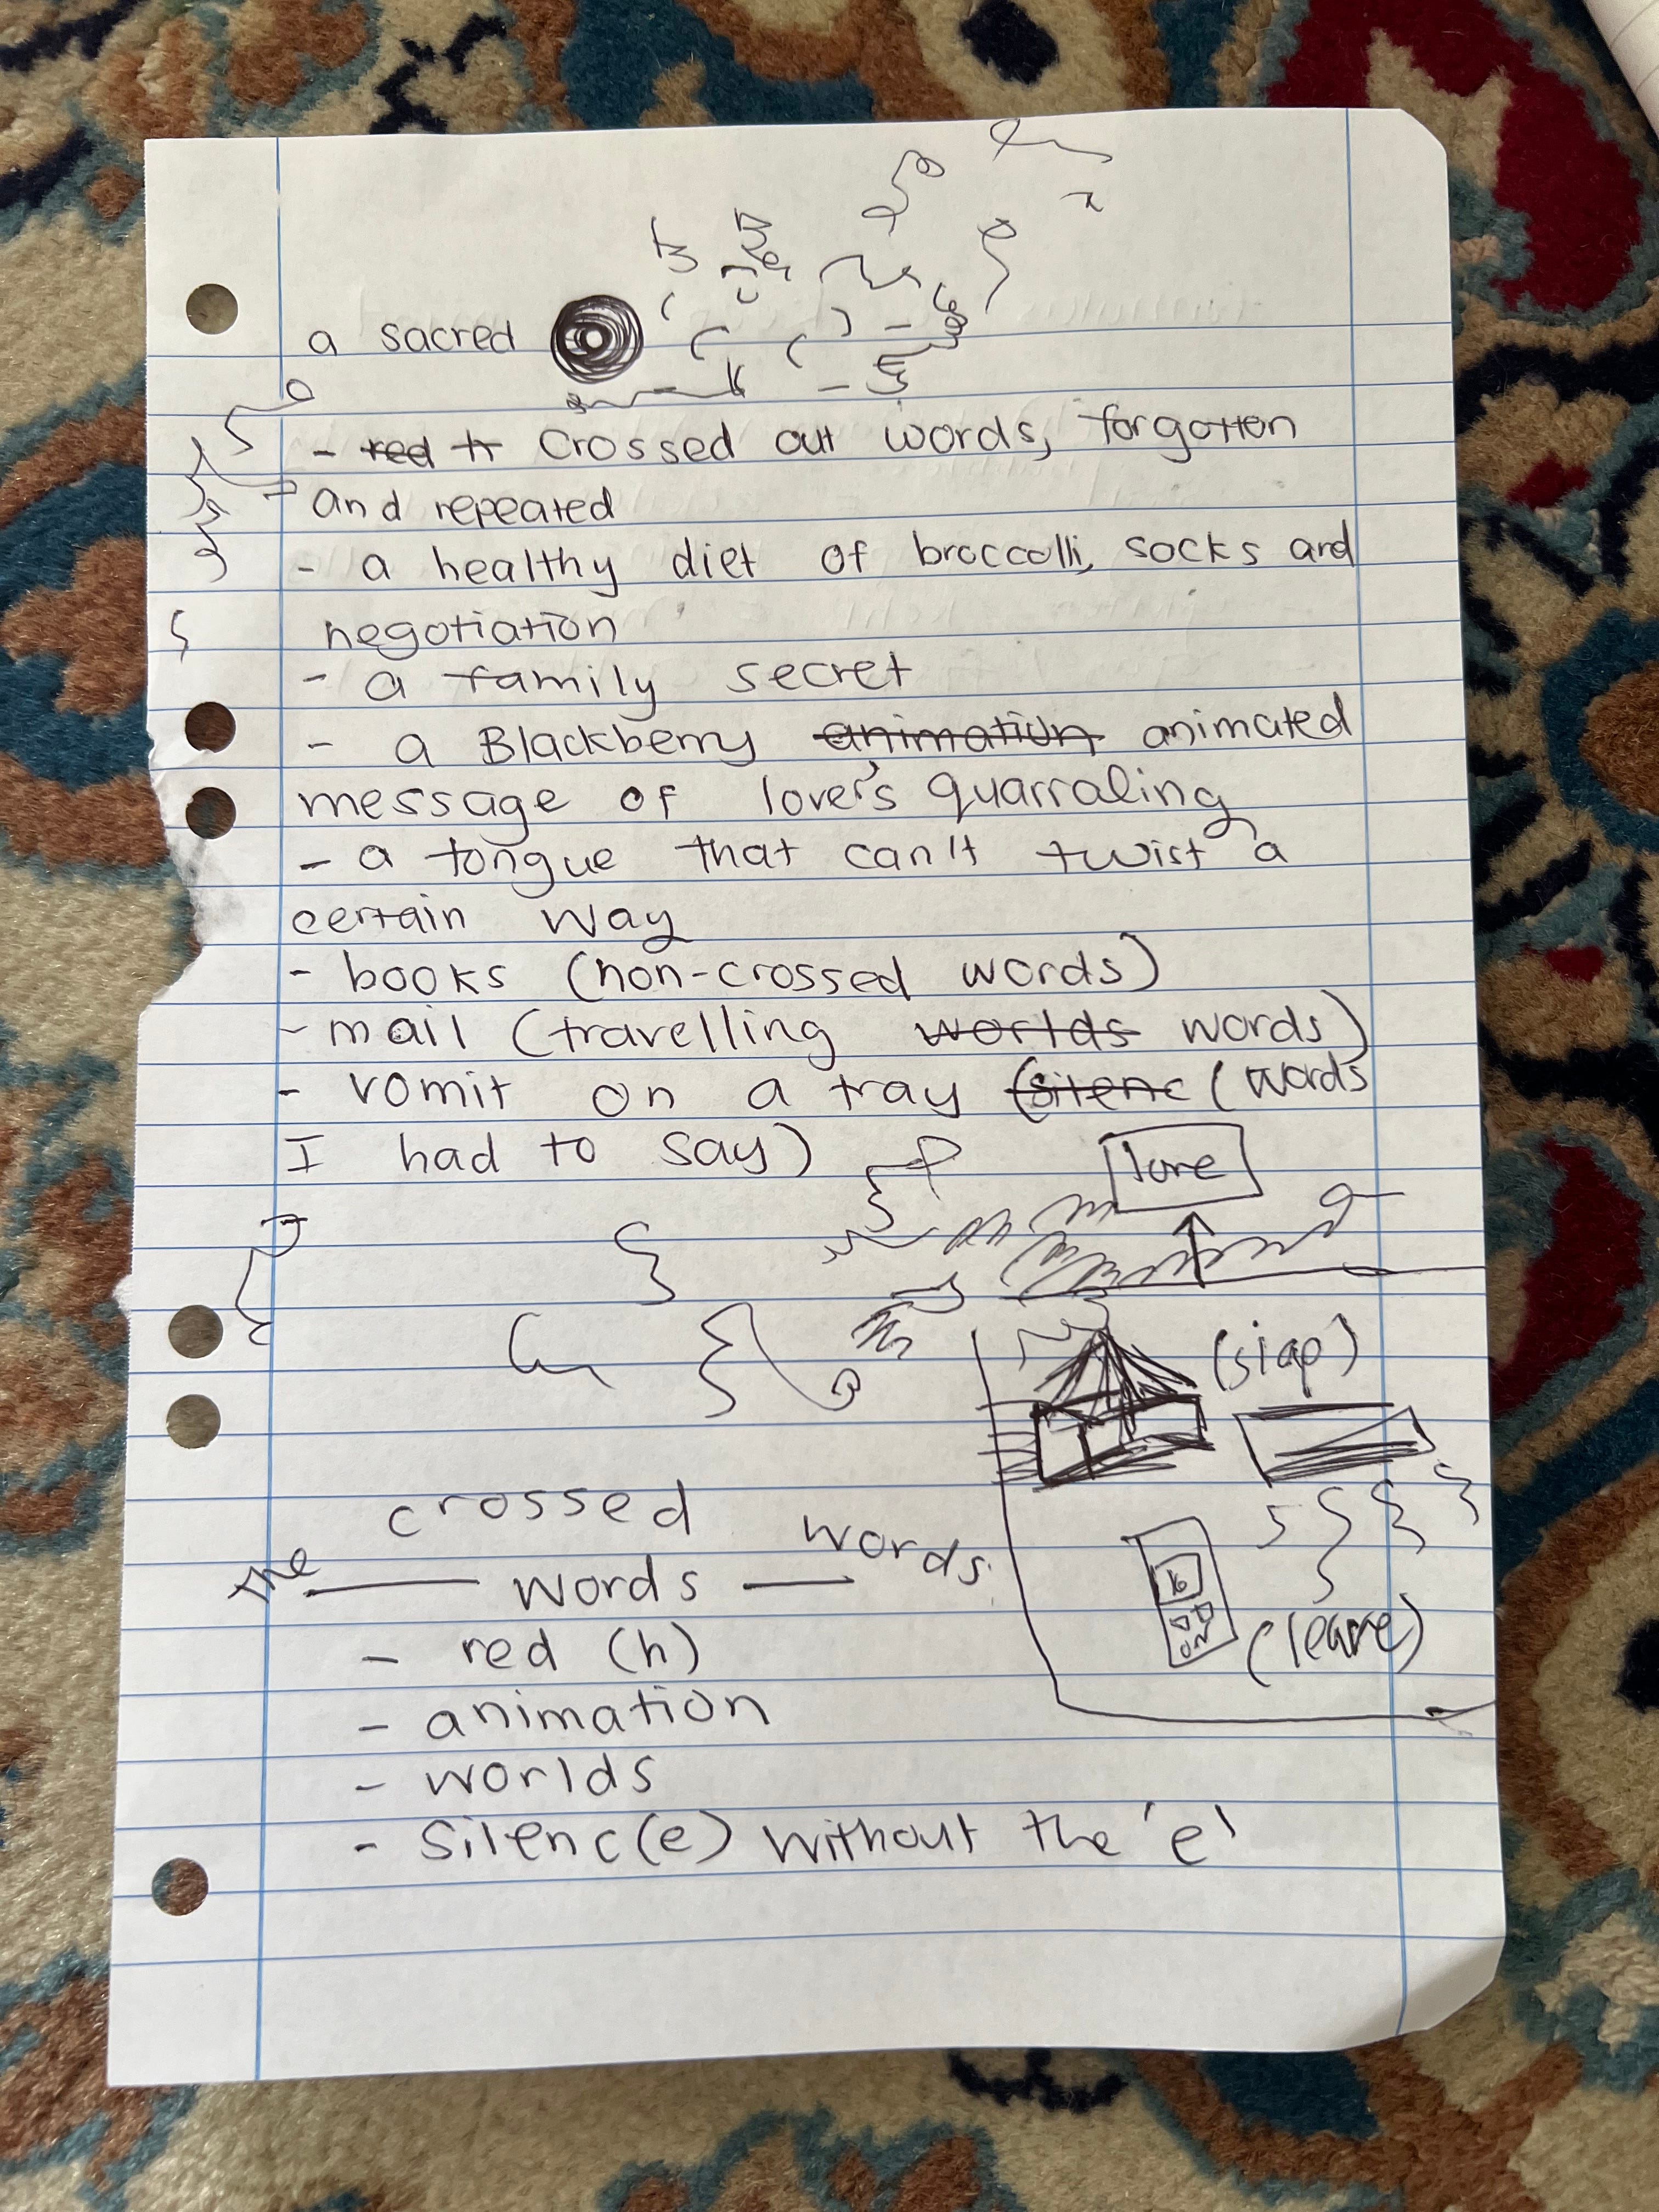 a sacred
- red h Crossed out words, forgotten
and repeated
- a healthy diet of broccolli, socks and
negotiation
- a family secret
- a Blackberry animation animated
message of lover's quarraling
- a tongue that can't twist a
certain way
- books (non-crossed words)
- mail (travelling worlds words)
- vomit on a tray (silenc (words
I had to say)
love
(slap)
crossed
the words words
- red (h)
(leave)
- animation
- worlds
- Silenc(e) without the 'e'